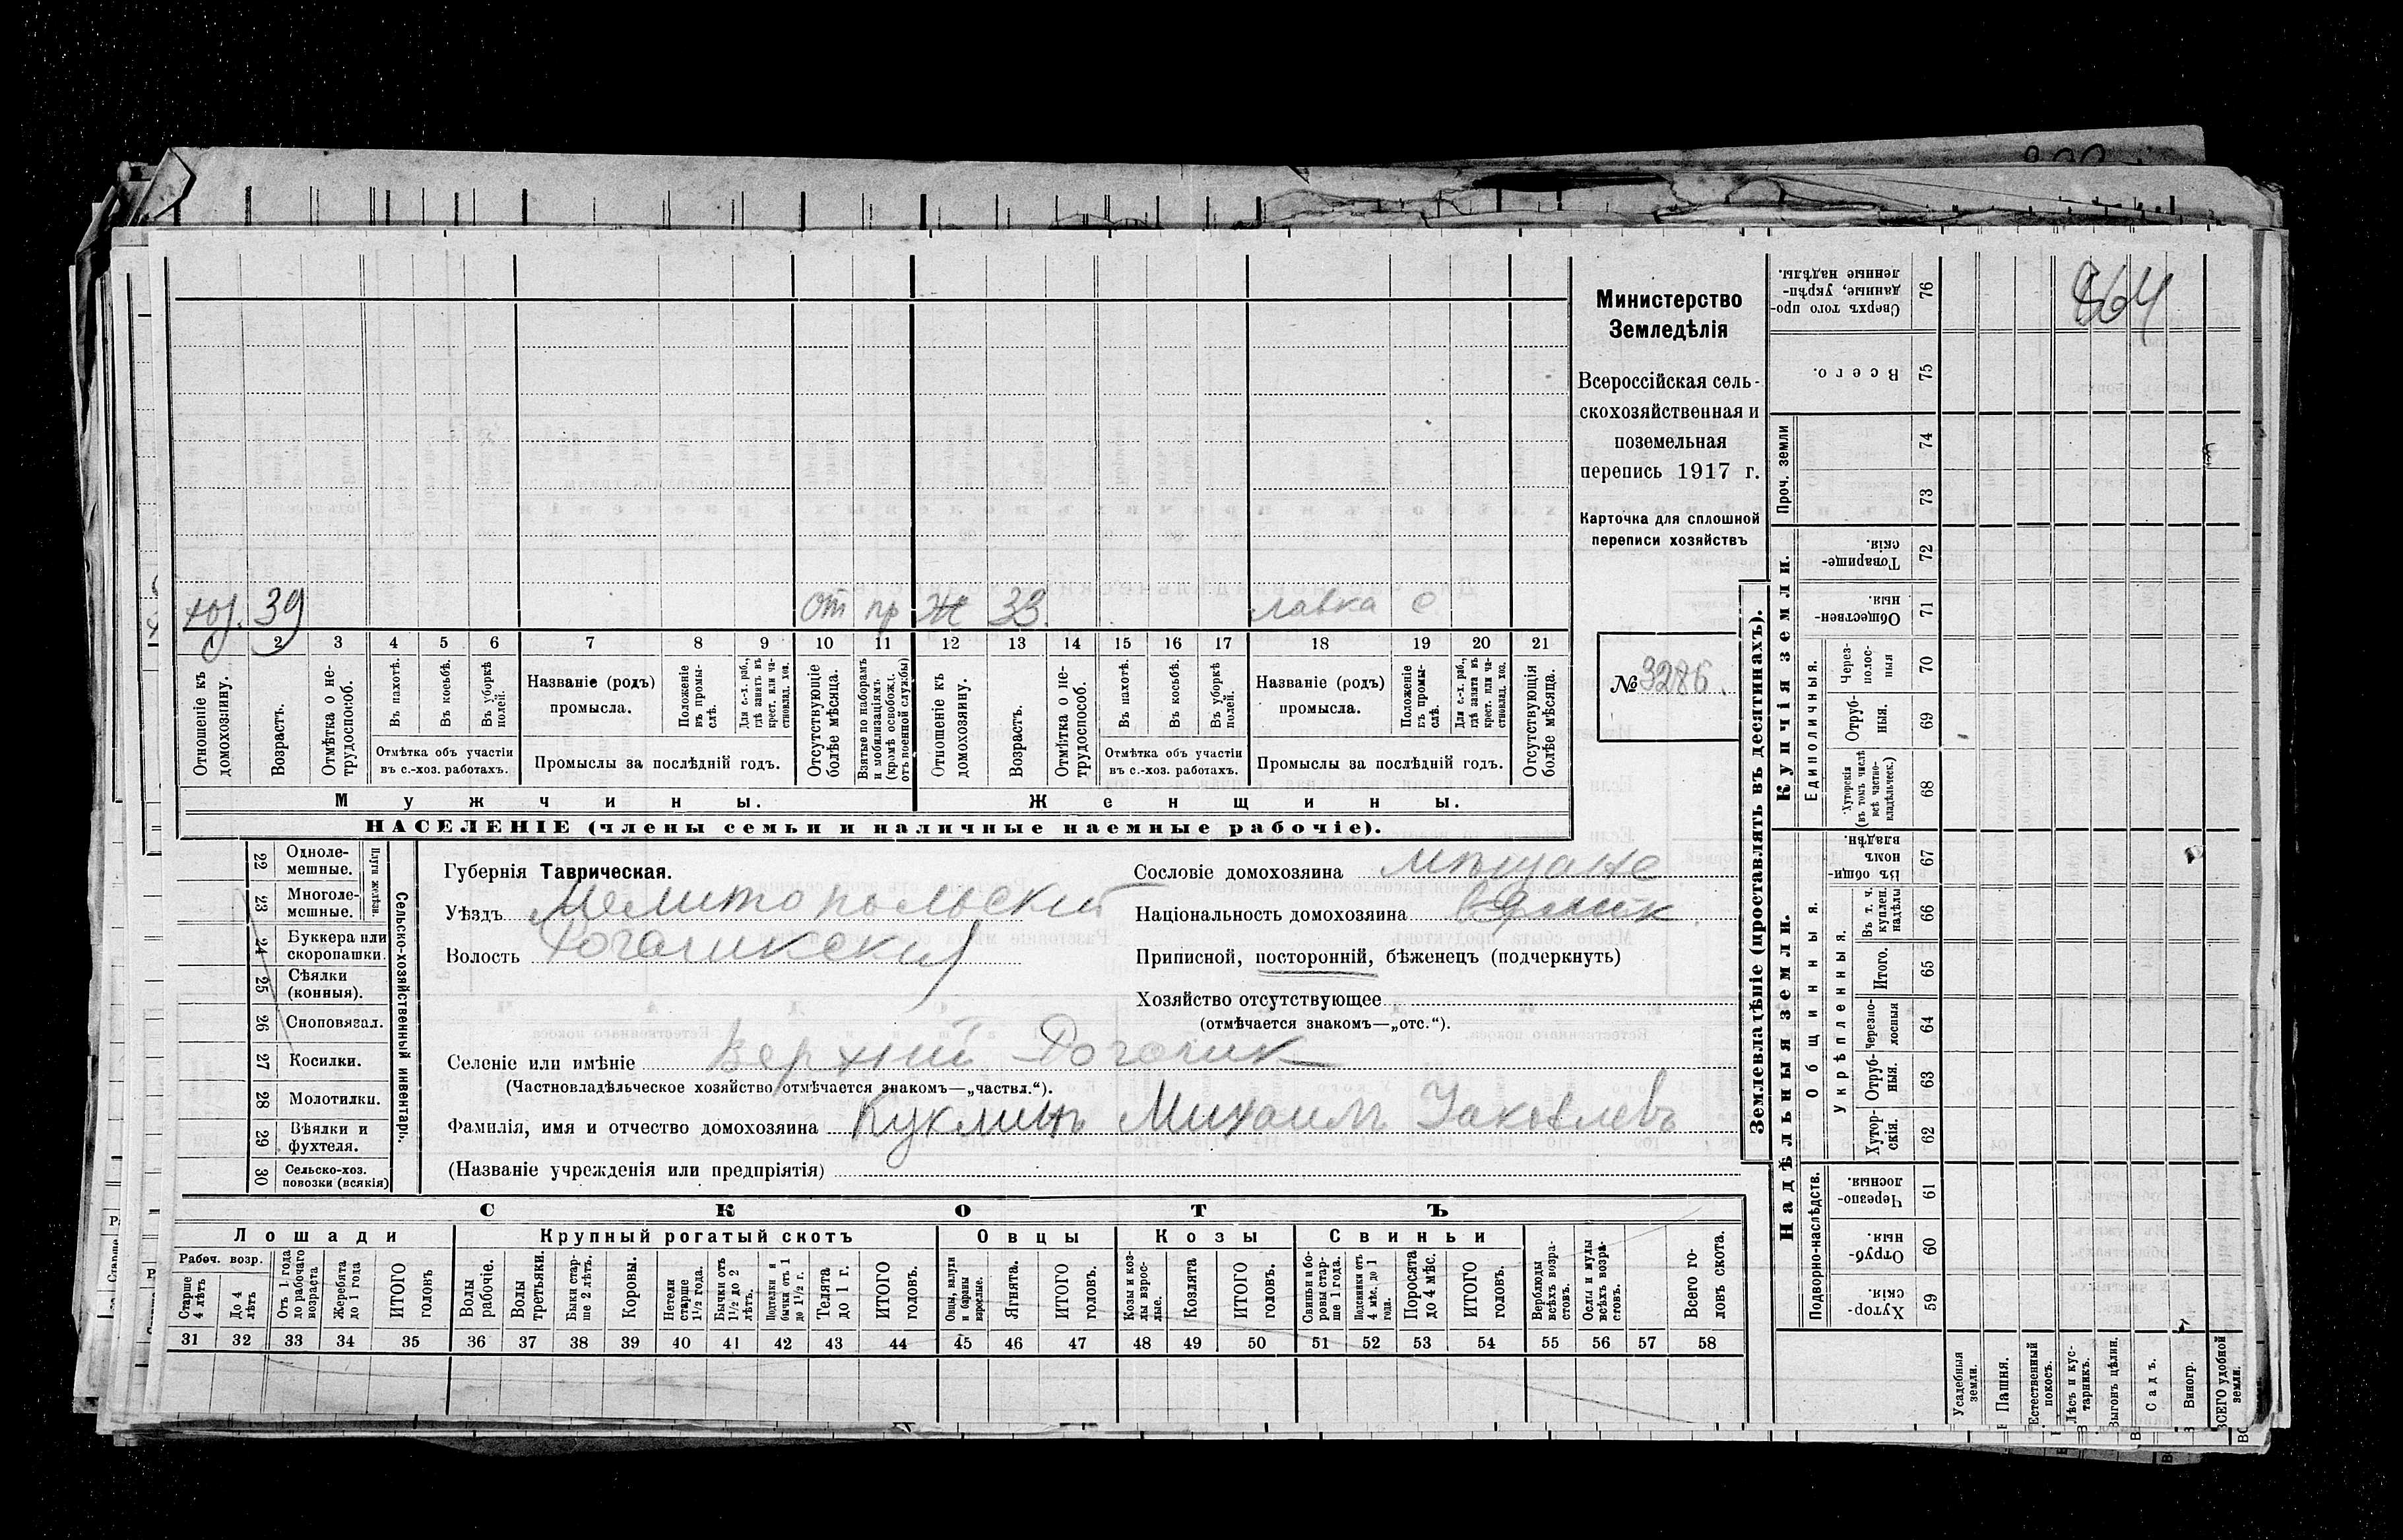 864
Министерство
Земледѣлія
Всероссійская сель-
скохозяйственная и
поземельная
перепись 1917 г.
Карточка для сплошной
переписи хозяйствъ
№ 3286.
хоз. 39 от пр Ж 33. лавка с
1 2 3 4 5 6 7 8 9 10 11 12 13 14 15 16 17 18 19 20 21
Отношеніе къ домохозяину.
Возрастъ.
Отмѣтка о не-трудоспособ.
Въ пахотѣ.
Въ косьбѣ.
Въ уборкѣ полей.
Отмѣтка объ участіи
въ с.-хоз. работахъ.
Названіе (родъ)
промысла.
Положеніе въ промы-слѣ.
Для с.-х. раб., гдѣ занятъ въ крест. или ча-стновлад. хоз.
Промыслы за послѣдній годъ.
Отсутствующіе болѣе мѣсяца.
Взятые по наборамъ и мобилизаціямъ (кромѣ освобожд. отъ военной службы)
Отношеніе къ домохозяину.
Возрастъ.
Отмѣтка о не-трудоспособ.
Въ пахотѣ.
Въ косьбѣ.
Въ уборкѣ полей.
Отмѣтка объ участіи
въ с.-хоз. работахъ.
Названіе (родъ)
промысла.
Положеніе въ промы-слѣ.
Для с.-х. раб., гдѣ занята въ крест. или ча-стновлад. хоз.
Промыслы за послѣдній годъ.
Отсутствующія болѣе мѣсяца.
Мужчины.
Женщины.
НАСЕЛЕНІЕ (члены семьи и наличные наемные рабочіе).
22 Одноле-мешные.
23 Многоле-мешные.
Плуги желѣзн.
24 Буккера или скоропашки.
25 Сѣялки (конныя).
26 Сноповязал.
27 Косилки.
28 Молотилки.
29 Вѣялки и фухтеля.
30 Сельско-хоз. повозки (всякія)
Сельско-хозяйственный инвентарь.
Губернія Таврическая.
Уѣздъ Мелитопольскій
Волость Рогачикский
Сословіе домохозяина мѣщане
Національность домохозяина
Приписной, посторонній, бѣженецъ (подчеркнуть)
Хозяйство отсутствующее
(отмѣчается знакомъ—„отс.“).
Селеніе или имѣніе Верхній Рогачик
(Частновладѣльческое хозяйство отмѣчается знакомъ—„частвл.“).
Фамилія, имя и отчество домохозяина Куклинъ Михаилъ Яковлевъ
(Названіе учрежденія или предпріятія)
СКОТЪ
Лошади Крупный рогатый скотъ Овцы Козы Свиньи
Рабоч. возр.
Старше 4 лѣтъ
До 4 лѣтъ
Отъ 1 года до рабочаго возраста
Жеребята до 1 года
ИТОГО головъ
Волы рабочіе.
Волы третьяки.
Быки стар-ше 2 лѣтъ.
Коровы.
Нетели старше 1½ года.
Бычки отъ 1½ до 2 лѣтъ.
Подтелки и бычки отъ 1 до 1½ г.
Телята до 1 г.
ИТОГО головъ.
Овцы, валухи и бараны взрослые.
Ягнята.
ИТОГО головъ.
Козы и коз-лы взрос-лые.
Козлята
ИТОГО головъ.
Свиньи и бо-ровы стар-ше 1 года.
Подсвинки отъ 4 мѣс. до 1 года.
Поросята до 4 мѣс.
ИТОГО головъ.
Верблюды всѣхъ возра-стовъ.
Ослы и мулы всѣхъ возра-стовъ.
Всего го-ловъ скота.
31 32 33 34 35 36 37 38 39 40 41 42 43 44 45 46 47 48 49 50 51 52 53 54 55 56 57 58
Землевладѣніе (проставлять въ десятинахъ).
Купчія земли.
Надѣльныя земли.
Сверхъ того про-данные, укрѣп-ленные надѣлы. 76
Всего. 75
Проч. земли 74
73
Товарище-скія. 72
Обществен-ныя. 71
Единоличныя.
Через-полос-ныя 70
Отруб-ныя. 69
Хуторскія (въ томъ числѣ всѣ частно-владѣльческ.) 68
Общинныя.
Въ общи-номъ владѣн. 67
Укрѣпленныя.
Въ т. ч. куплен. надѣлы 66
Итого. 65
Черезпо-лосныя 64
Отруб-ныя. 63
Хутор-скія. 62
Подворно-наслѣдств.
Черезпо-лосныя. 61
Отруб-ныя. 60
Хутор-скія. 59
Усадебныя земли.
Пашня.
Естественный покосъ.
Лѣсъ и кус-тарникъ.
Выгонъ цѣлин.
Садъ.
Виногр.
ВСЕГО удобной земли.